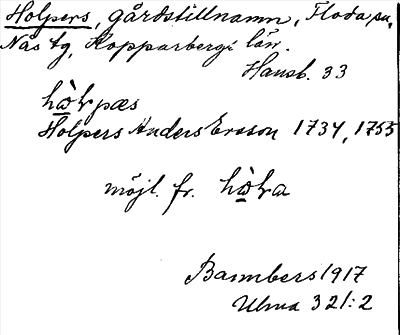 Holpers, gårdstillnamn, Floda sn,
Nås tg, Kopparbergs län.
Hausb. 33
Holpers Anders Ersson 1734, 1755
möjl. fr.
1917
Ulma 321:2